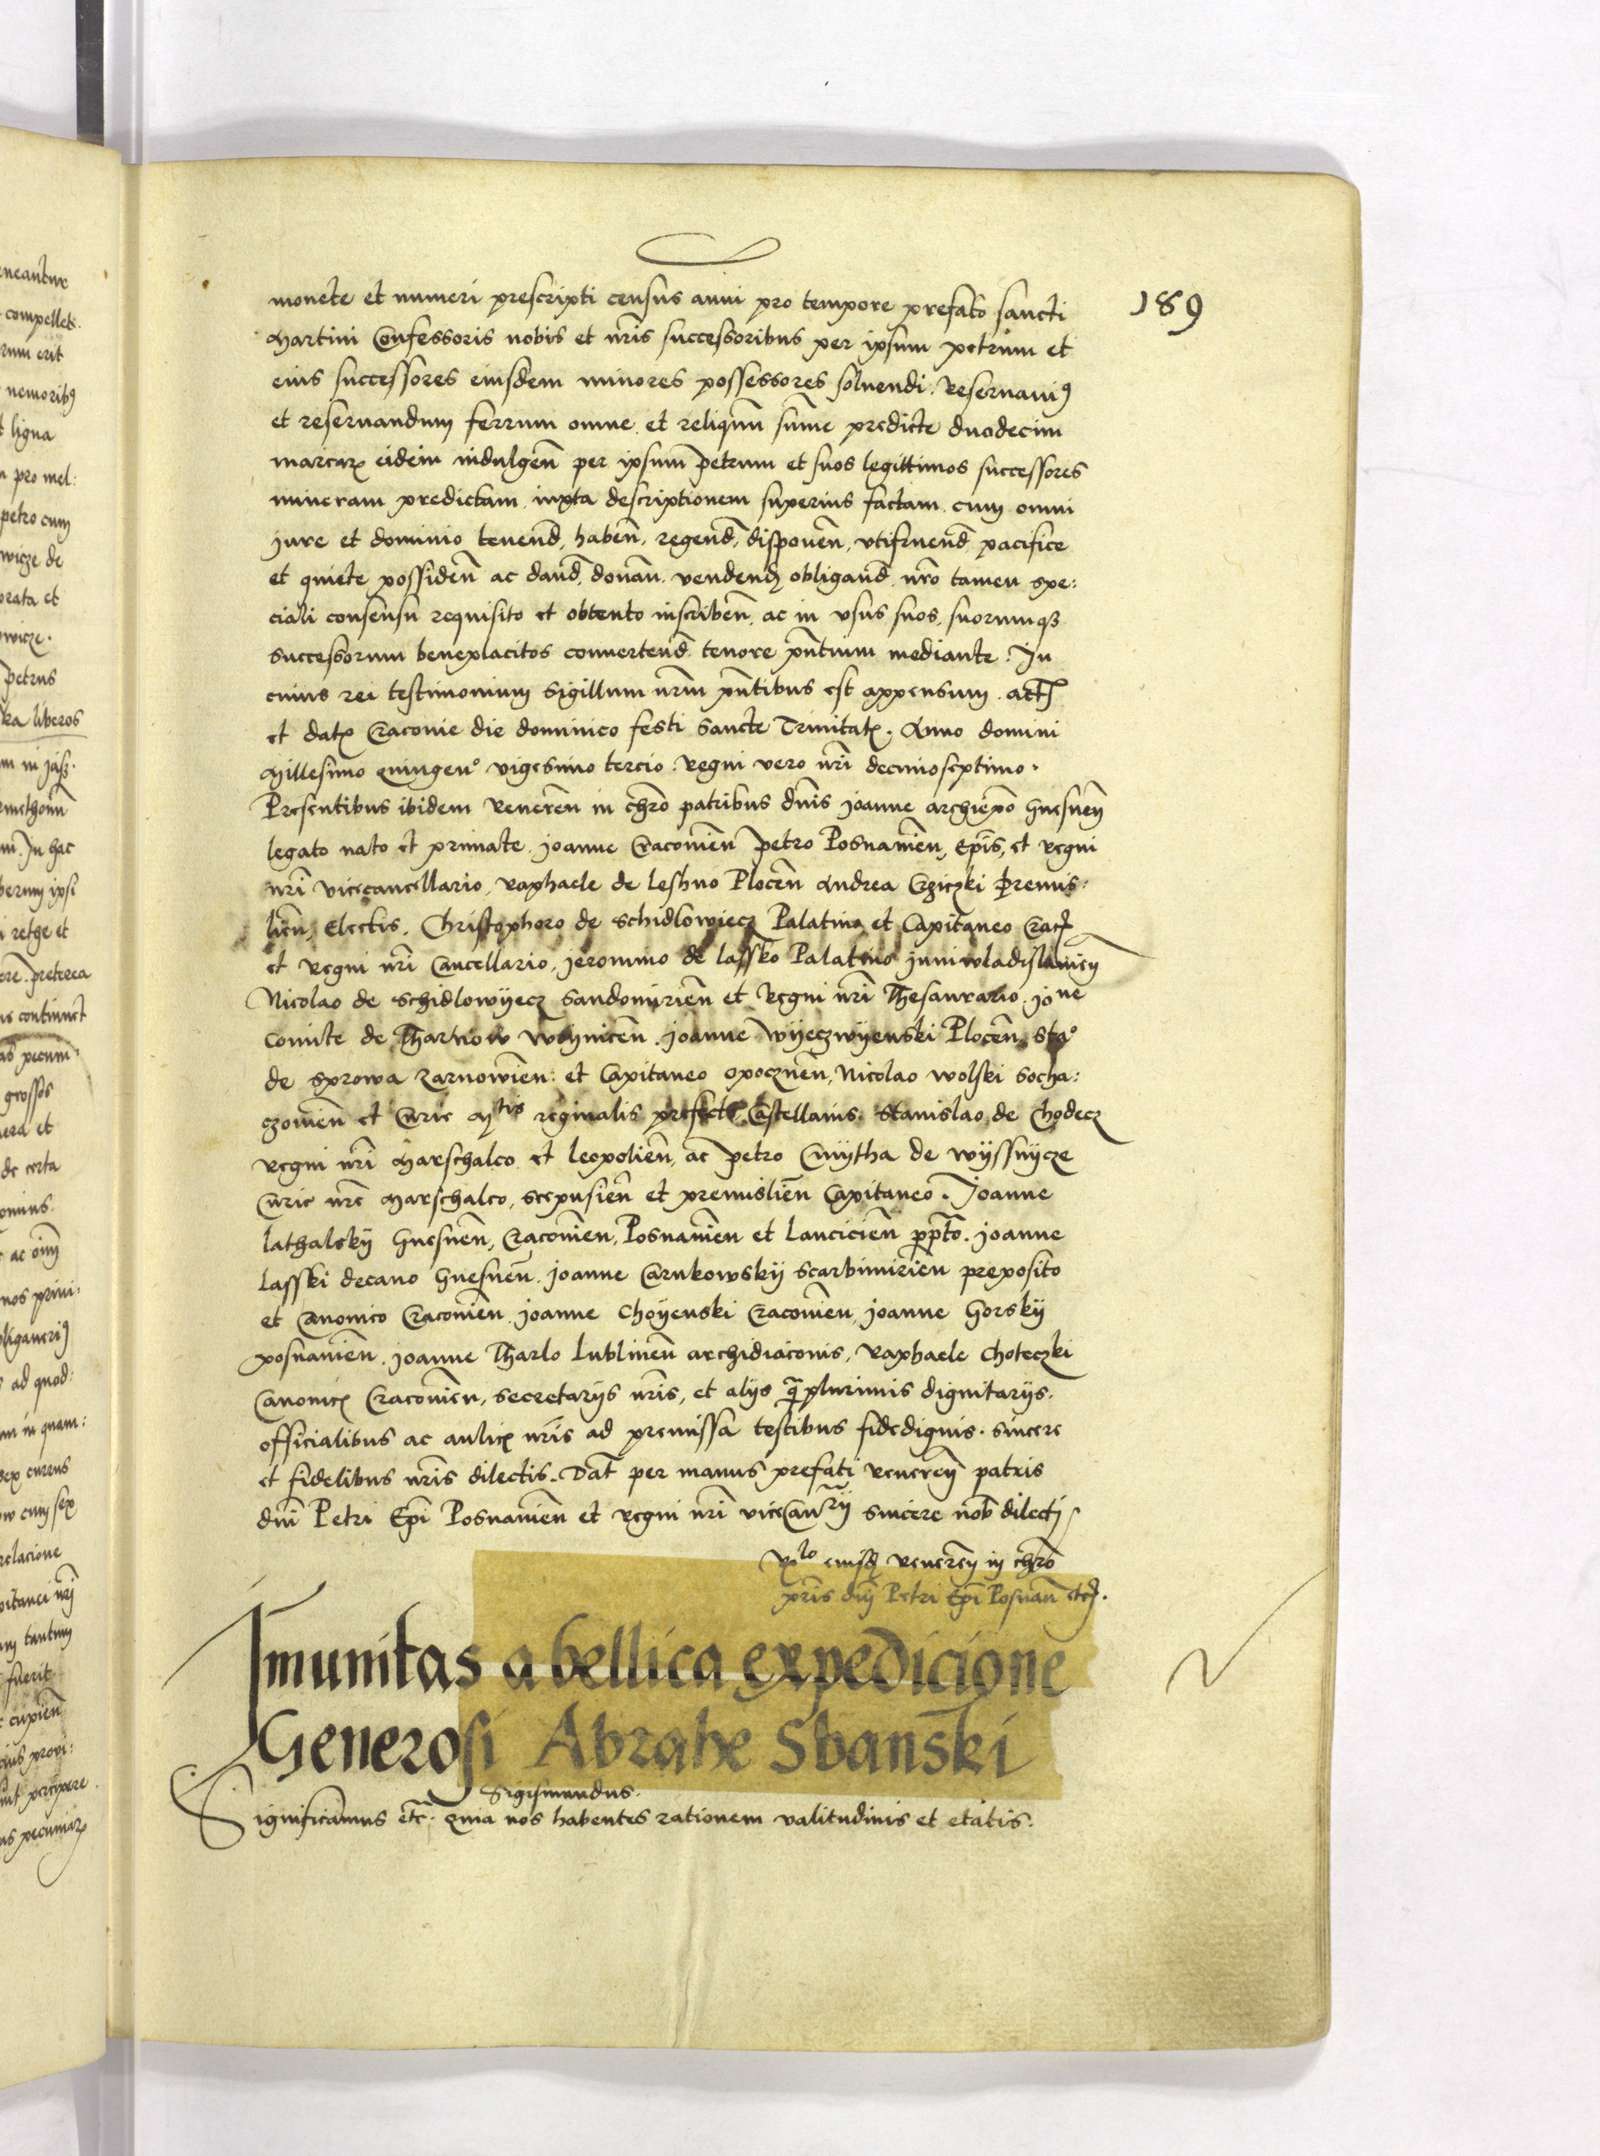 189
monete et numeri prescripti census anni pro tempore prefato sancti
Martini Confessoris nobis et nr̄is successoribus per ipsum petrum et
eius successores eiusdem minores possessores soluendi. Reseruauiꝰ
et reseruandum ferrum omne et reliquū sūme predicte duodecim
marcarꝫ eidem indulgeñ per ipsum petrum et suos legittimos successores
mineram predictam iuxta descriptionem superius factam cum omni
jure et dominio tenend̄, habeñ, regend̄, disponeñ, vtifruend̄ pacifice
et quiete possideñ ac dand̄, donañ, vendend̄ obligand̄ nr̄o tamen spe:
ciali consensu requisito et obtento inscribeñ, ac in vsus suos, suorumqꝫ
successorum beneplacitos conuertend̄ tenore pn̄tium mediante. In
cuius rei testimonium Sigillum nr̄m pn̄tibus est appensum. Actꝫ
et datꝫ Cracouie die dominico festi Sancte Trinitatꝫ. Anno domini
Millesimo quingenᵒ vigesimo tercio. Regni vero nr̄i decimoseptimo.
Presentibus ibidem Reuereñ in chr̄o patribus dn̄is Joanne archiep̄o Gnesneñ
legato nato et primate. Joanne Cracouieñ Petro Posnanieñ, Ep̄is, et Regni
nr̄i vicecancellario, Raphaele de Leshno Ploceñ Andrea Crziczki Premis:
lieñ, Electis. Christophoro de Schidlowiecz Palatino et Capitaneo Cracꝫ
et Regni nr̄i Cancellario, Jeronimo de Lassko Palatino Juniwladislauieñ
Nicolao de Schidlowyecz Sandomirieñ et Regni nr̄i Thesaurario, Joⁿᵉ
Comite de Tharnow Woyniceñ. Joanne Wyeczwyenski Ploceñ, Staᵒ
de Sprowa Zarnowieñ: et Capitaneo Opoczneñ, Nicolao Wolski Socha:
czouieñ et Curie Mᵗⁱˢ reginalis prefecto Castellanis. Stanislao de Chodecz
Regni nr̄i Marschalco et leopolieñ, ac Petro Cmytha de Wyssnycze
Curie nr̄e Marschalco, Scepusieñ et premislieñ Capitaneo. Joanne
Lathalsky Gnesneñ, Cracouieñ, Posnanieñ et Lancicieñ pp̄to. Joanne
Lasski decano Gnesneñ. Joanne Carnkowsky Scarbimirieñ preposito
et Canonico Cracouieñ. Joanne Choyenski Cracouieñ, Joanne Gorsky
posnanieñ. Joanne Tharlo Lublineñ archidiaconis, Raphaele Choteczki
Canonicꝫ Cracouieñ, Secretarijs nr̄is, et alijs q̄plurimis dignitarijs.
officialibus ac aulicꝫ nr̄is ad premissa testibus fidedignis. Sincere
et fidelibus nr̄is dilectis. Dat̄ per manus prefati Reuereñ patris
dn̄i Petri Ep̄i Posnanieñ et Regni nr̄i viceCanʳʳij sincere nob̄ dilectj
Rᵉˡᵒ eiusdꝫ Reuereñ in chr̄o
pr̄is dn̄j Petri Ep̄i Posnañ etcꝫ.
Imunitas a bellica expedicione
Generosi Abrahe Sbanski
Sigismundus.
Significamus etc̄. Quia nos habentes rationem valitudinis et etatis.